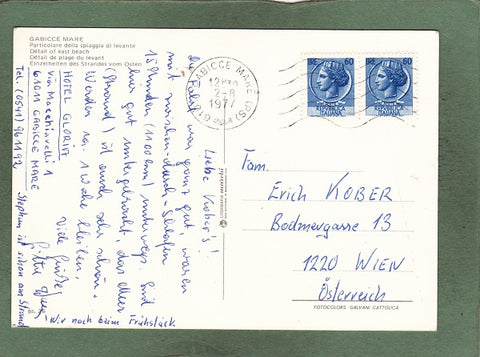 GABICCE MARE
Particolare della spiaggia di levante
Détail of east beach
Détail de plage du levant
Einzelheiten des Strandes vom Osten
GABICCE MARE (PS)
2-8
1977
60
60
REPUBBLICA ITALIANA
REPUBBLICA ITALIANA
Liebe Kober's!
die Fahrt war ganz gut waren
mit
15 Stunden (1100 km) unterwegs. Sind
hier gut untergebracht, das Meer
(Strand) ist auch sehr schön.
Werden ca. 1 Woche bleiben,
Viele Grüße
HOTEL GLORIA
Via Macchiavelli 1
61011 GABICCE MARE
Tel. (0541) 961192
Stephan ist schon am Strand
Wir noch beim Frühstück
Fam.
Erich KOBER
Bodmergasse 13
1220 WIEN
Österreich
FOTOCOLORS GALVANI CATTOLICA